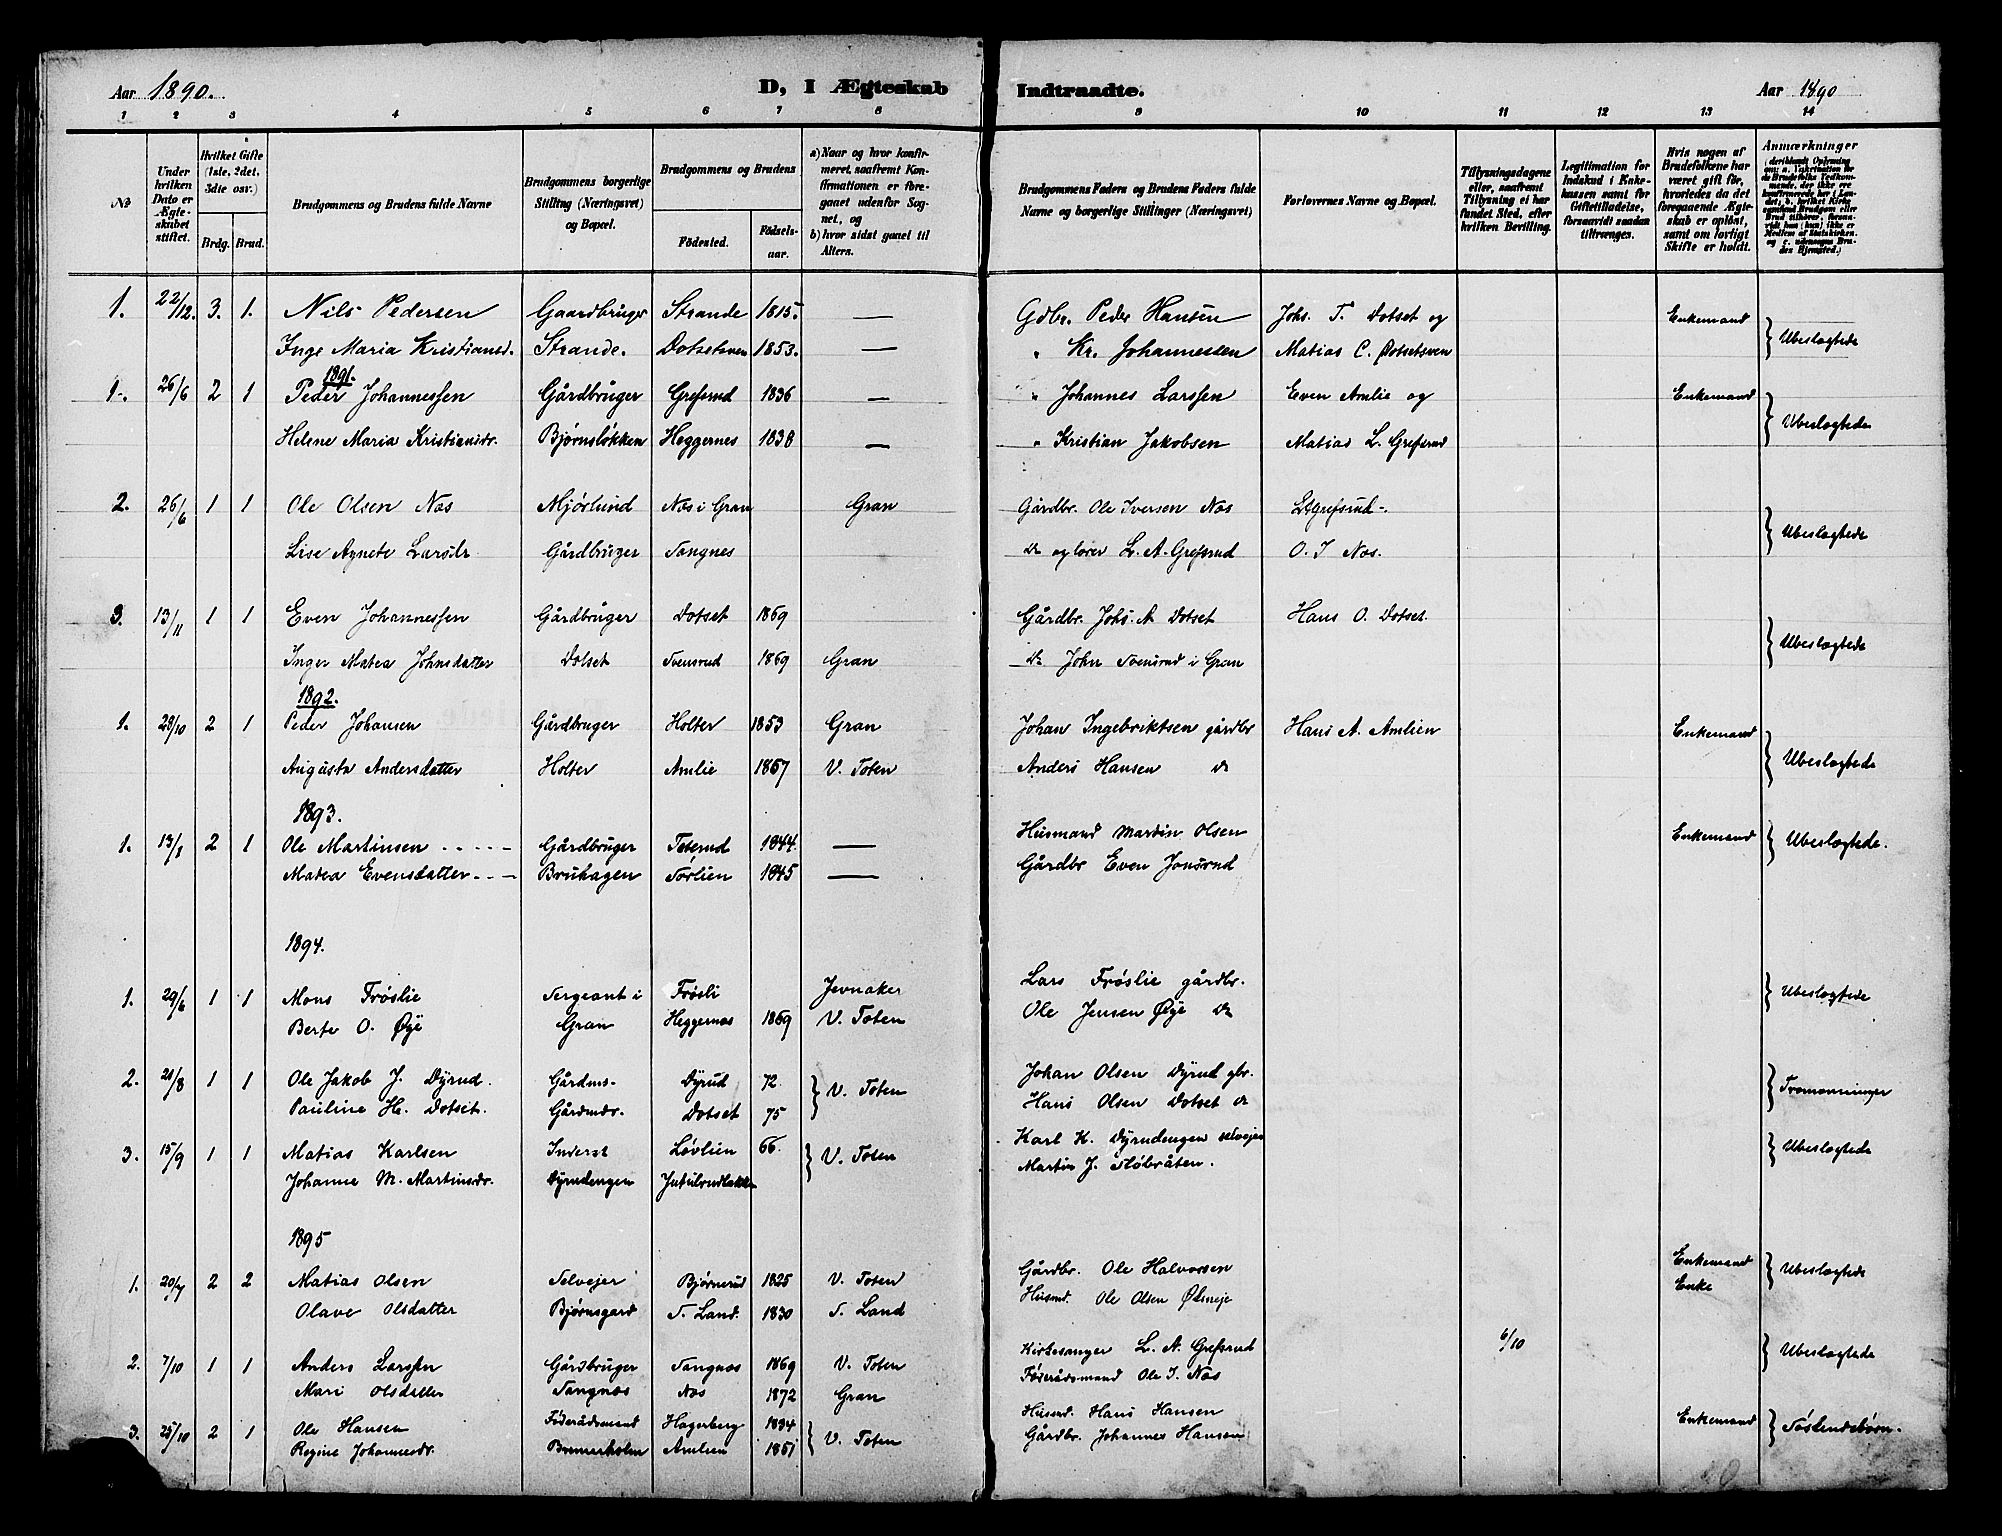 Aar 1890. D, I Ægteskab Indtraadte. Aar 1890
1 2 3 4 5 6 7 8 9 10 11 12 13 14
No
Under hvilken Dato er Ægteskabet stiftet.
Hvilket Gifte (1ste, 2det, 3die osv.)
Brdg. Brud.
Brudgommens og Brudens fulde Navne
Brudgommens borgerlige Stilling (Næringsvei) og Bopæl.
Brudgommens og Brudens
Fødested. Fødselsaar.
a) Naar og hvor konfirmeret, saafremt Konfirmationen er foregaaet udenfor Sognet, og
b) hvor sidst gaaet til Alters.
Brudgommens Faders og Brudens Faders fulde Navne og borgerlige Stillinger (Næringsvei)
Forlovernes Navne og Bopæl.
Tillysningsdagene eller, saafremt Tillysning ei har fundet Sted, efter hvilken Bevilling.
Legitimation for Indskud i Enkekassen samt for Giftetilladelse, forsaavidt saadan tiltrænges.
Hvis nogen af Brudefolkene har været gift før, hvorledes da det foregaaende Ægteskab er opløst, samt om lovligt Skifte er holdt.
Anmærkninger
1. 22/12. 3. 1. Nils Pedersen Gaardbruger Strande 1815. — Gdbr. Peder Hansen Johs. T. Dotset og Enkemand
Inge Maria Kristiansd. Strande. Dotsetsven 1853. — " Kr. Johannessen Matias C. Dotsetsven } Ubeslægtede
1891.
1. 26/6 2 1 Peder Johannessen Gårdbruger Grefsrud 1836 — " Johannes Larssen Even Amlie og Enkemand
Helene Maria Kristiansdr. Bjørnsløkken Heggernes 1838 — " Kristian Jakobsen Matias L. Grefsrud } Ubeslægtede
2. 26/6 1 1 Ole Olsen Næs Mjørlund Næs i Gran Gran Gårdbr. Ole Iversen Næs
Lise Agnete Larsdr Gårdbruger Sangnes Do og lærer L. A. Grefsrud O. I Næs. } Ubeslægtede
3. 13/11 1 1 Even Johannessen Gårdbruger Dotset 1869 Gårdbr. Johs. A Dotset Hans O. Dotset.
Inger Matea Johnsdatter Dotset Svensrud 1869 Gran Do John Svensrud i Gran } Ubeslægtede
1892.
1. 28/10 2 1 Peder Johansen Gårdbruger Holter 1853 Gran Johan Ingebriktsen gårdbr Hans A. Amlien Enkemand
Augusta Andersdatter Holter Amlie 1867 V. Toten Anders Hansen Do } Ubeslægtede
1893.
1. 13/8 2 1 Ole Martinsen - - - - - Gårdbruger Teterud 1844. — Husmand Martin Olsen Enkemand } Ubeslægtede.
Matea Evensdatter - - - Bruhagen Sørlien 1845 — Gårdbr Even Jonsrud
1894.
1. 29/6 1 1 Mons Frøslie Sergeant i Frøsli Jevnaker Lars Frøslie gårdbr.
Berte O. Øye Gran Heggernæs 1869 V. Toten Ole Jensen Øye Do } Ubeslægtede
2. 21/8 1 1 Ole Jakob J. Dyrud. Gårdms- Dyrud 72. } V. Toten Johan Olsen Dyrud gbr. } Tremenninger
Pauline H. Dotset. Gårdmdr. Dotset 75 Hans Olsen Dotset Do
3. 15/9 1 1 Matias Karlsen Inderst Løvlien 66. } V. Toten Karl K. Dyrudengen selvejer } Ubeslægtede
Johanne M. Martinsdr. Dyrudengen Martin J. Fløbråten.
1895
1. 20/7 2 2 Matias Olsen Selvejer Bjørnerud 1825 V. Toten Gårdbr. Ole Halvorsen Enkemand } Ubeslægtede
Olave Olsdatter Bjørnsgard S. Land. 1830 S. Land Husmd. Ole Olsen Enke
2. 7/10 1 1 Anders Larssen Gårdbruger Sangnæs 1869 V. Toten Kirkesanger L. A. Grefsrud 6/10 } Ubeslægtede
Mari Olsdatter Sangnæs Næs 1872 Gran Føderådsmand Ole I. Næs
3. 25/10 2 1 Ole Hansen Føderådsmand Hagerberg 1834 } V. Toten Husmd. Hans Hansen Enkemand } Søskendebørn.
Regine Johannesdr. Amlien 1851 Gårdbr. Johannes Hansen